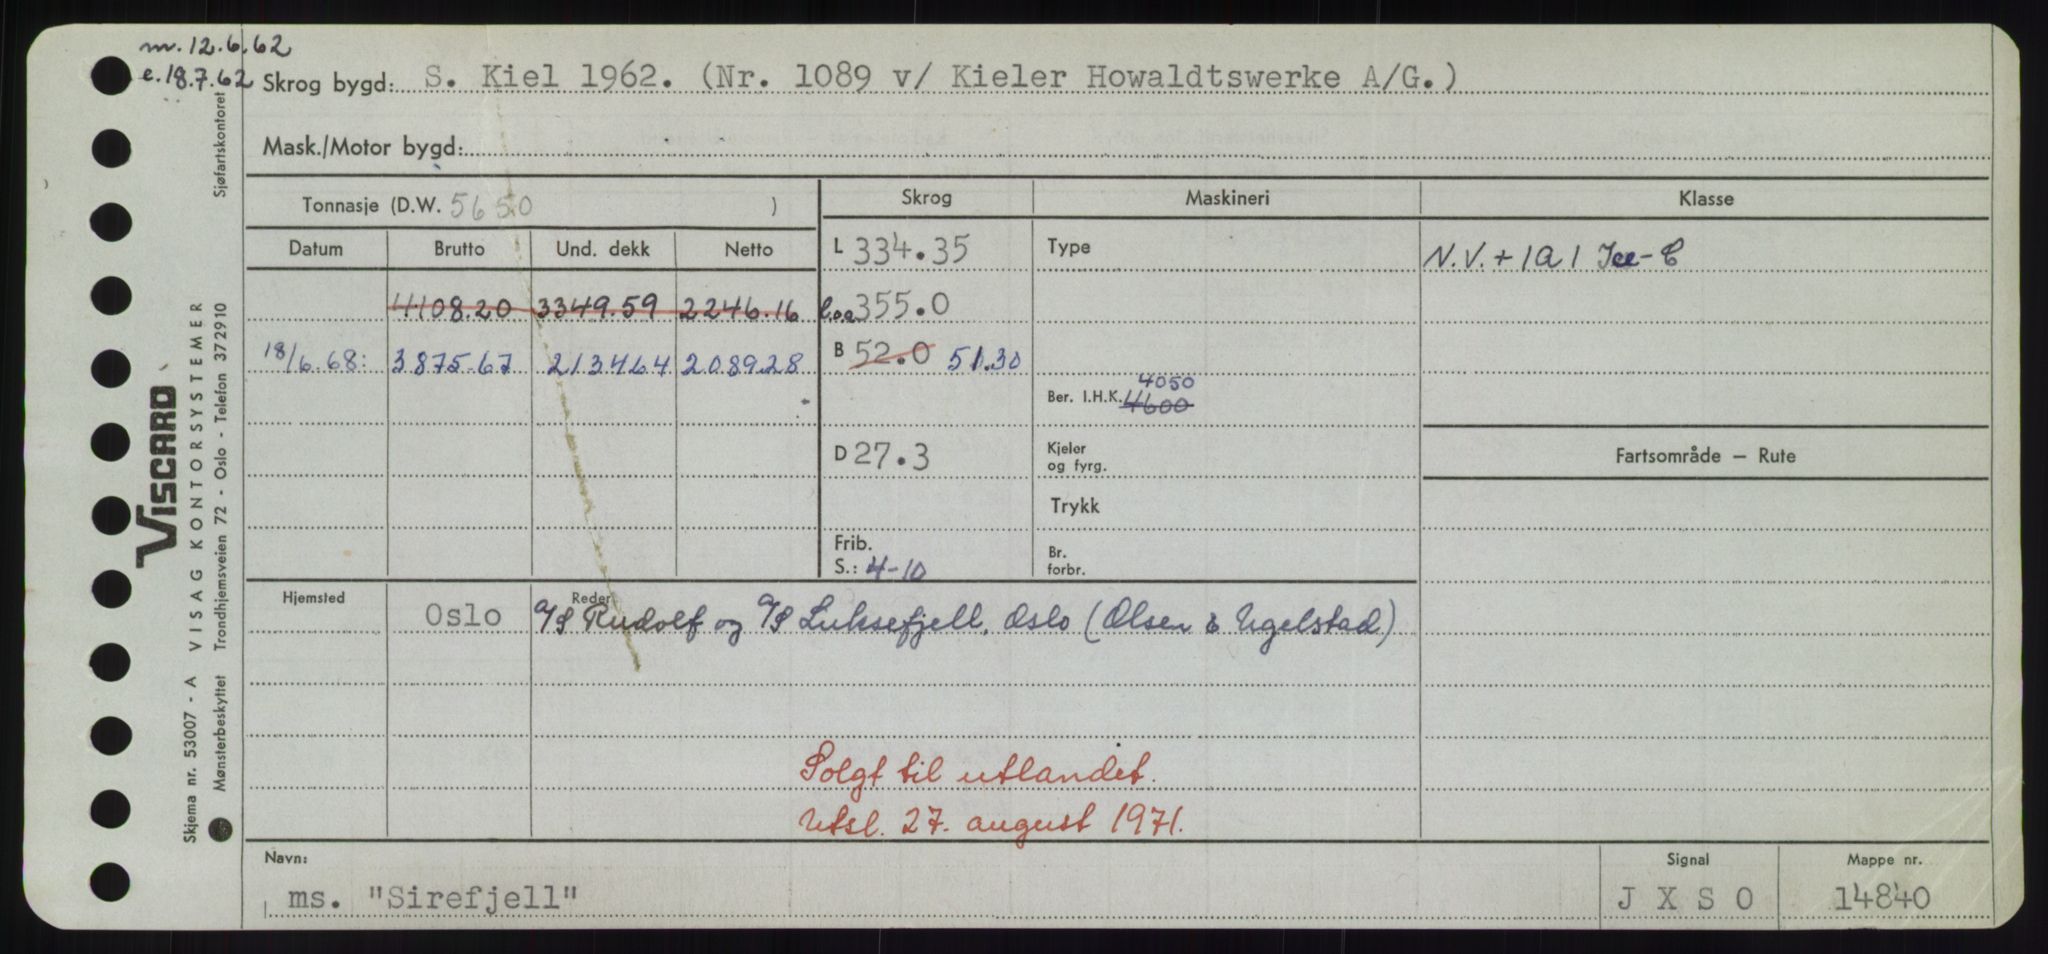 m. 12.6.62
e. 18.7.62
Skrog bygd: S. Kiel 1962. (Nr. 1089 v/ Kieler Howaldtswerke A/G.)
Mask./Motor bygd:
Tonnasje (D.W. 5650 )
Skrog Maskineri Klasse
Datum Brutto Und. dekk Netto
L 334.35 Type N.V. + 1A1 Ice-C
4108.20 3349.59 2246.16 l.o.a 355.0
18/6.68: 3875.67 2134.64 2089.28 B 52.0 51.30
4050
Ber. I.H.K. 4600
D 27.3 Kjeler
og fyrg.
Fartsområde – Rute
Trykk
Frib.
S.: 4-10
Br.
forbr.
Hjemsted Oslo Reder A/S Rudolf og A/S Luksefjell, Oslo (Olsen & Ugelstad)
Solgt til utlandet.
Utsl. 27. august 1971.
Navn: Signal Mappe nr.
ms. "Sirefjell" J X S O 14840
Skjema nr. 53007 - A VISAG KONTORSYSTEMER
Mønsterbeskyttet Trondhjemsveien 72 - Oslo - Telefon 372910 Sjøfartskontoret
VISCARD